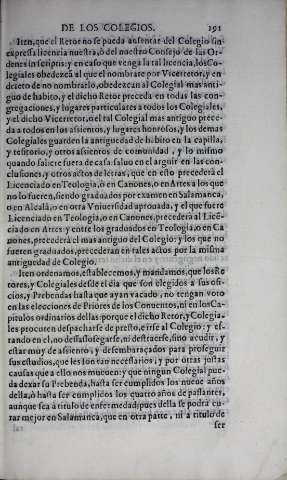 DE LOS COLEGIOS. 291
Iten, que el Retor no se pueda ausentar del Colegio sin
expressa licencia nuestra, ò del nuestro Consejo de las Or-
denes in scriptis; y en caso que venga la tal licencia, los Co-
legiales obedezcã al que el nombrare por Viceretor, y en
defeto de no nombrarlo, obedezcan al Colegial mas anti-
guo de habito, y el dicho Retor preceda en todas las con-
gregaciones, y lugares particulares a todos los Colegiales,
y el dicho Viceretor, o el tal Colegial mas antiguo prece-
da a todos en los assientos, y lugares honrosos, y los demas
Colegiales guarden la antiguedad de habito en la capilla,
y refitorio, y otros assientos de comunidad, y lo mismo
quando salierẽ fuera de casa, saluo en el arguir en las con-
clusiones, y otros actos de letras, que en esto precederá el
Licenciado en Teologia, ò en Canones, o en Artes a los que
no lo fueren, siendo graduados por examen en Salamanca,
o en Alcalà, o en otra Vniuersidad aprouada, y el que fuere
Licenciado en Teologia, o en Canones, precederá al Licē-
ciado en Artes: y entre los graduados en Teologia, o en Ca
nones, precederá el mas antiguo del Colegio: y los que no
fueren graduados, precederan en tales actos por la misma
antiguedad de Colegio.
Iten ordenamos, establecemos, y mandamos, que los Re
tores, y Colegiales desde el dia que son elegidos a sus ofi-
cios, y Prebendas, hasta que ayan vacado, no tengan voto
en las elecciones de Priores de los Conuentos, ni en los Ca-
pitulos ordinarios dellas: porque el dicho Retor, y Colegia-
les procuren despacharse de presto, e irse al Colegio: y es-
tando en el, no desassosegarse, ni destraerse, sino acudir, y
estar muy de assiento, y desembaraçados para proseguir
sus estudios, que les son tan necessarios, y por otras justas
causas que a ello nos mueuen: y que ningun Colegial pue-
da dexar su Prebenda, hasta ser cumplidos los nueue años
della, ò hasta ser cumplidos los quatro años de passantes,
aunque sea a titulo de enfermedad, pues della se podrá cu-
rar mejor en Salamanca, que en otra parte, ni a titulo de
ser